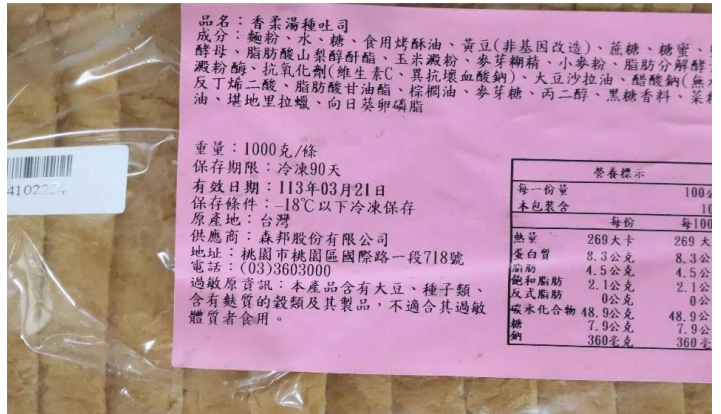 品名：香柔湯種吐司
成分：麵粉、水、糖、食用烤酥油、黃豆(非基因改造)、蔗糖、糖蜜、
酵母、脂肪酸山梨醇酐酯、玉米澱粉、麥芽糊精、小麥粉、脂肪分解酵素
澱粉酶、抗氧化劑(維生素C、異抗壞血酸鈉)、大豆沙拉油、醋酸鈉(無水
反丁烯二酸、脂肪酸甘油酯、棕櫚油、麥芽糖、丙二醇、黑糖香料、菜籽
油、堪地里拉蠟、向日葵卵磷脂
重量：1000克/條
保存期限：冷凍90天
有效日期：113年03月21日
保存條件：-18℃以下冷凍保存
原產地：台灣
供應商：森邦股份有限公司
地址：桃園市桃園區國際路一段718號
電話：(03)3603000
過敏原資訊：本產品含有大豆、種子類、
含有麩質的穀類及其製品，不適合其過敏
體質者食用。
營養標示
每一份量 100公
本包裝含 10
每份 每100
熱量 269大卡 269 大
蛋白質 8.3公克 8.3公
脂肪 4.5公克 4.5公
飽和脂肪 2.1公克 2.1公
反式脂肪 0公克 0公
碳水化合物 48.9公克 48.9公
糖 7.9公克 7.9公
鈉 360毫克 360毫